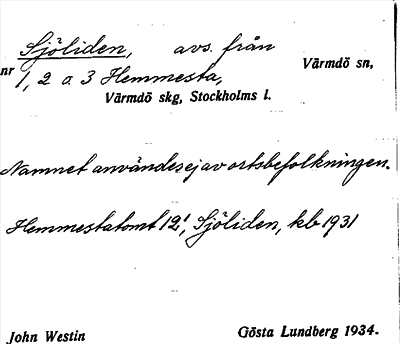 Sjöliden, avs. från
nr 1, 2 o. 3 Hemmesta, Värmdö sn,
Värmdö skg, Stockholms l.
Namnet användes ej av ortsbefolkningen.
Hemmestatomt 12¹, Sjöliden, kb 1931
John Westin Gösta Lundberg 1934.